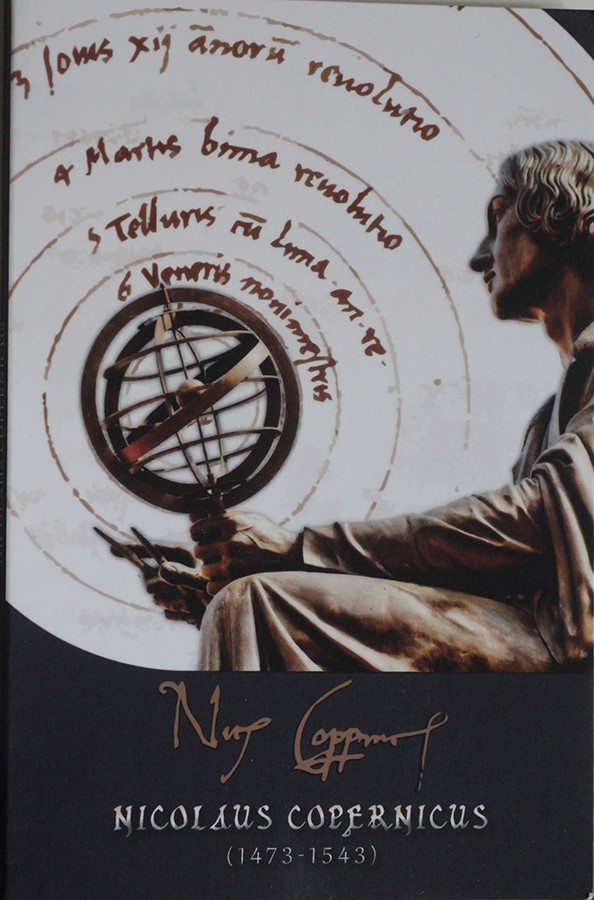 3 Jouis xij ānorū reuolutio
4 Martis bima reuolutio
5 Telluris cū luna an. re.
6 Veneris nonimestris
Nic Coppernic
NICOLAUS COPERNICUS
(1473-1543)